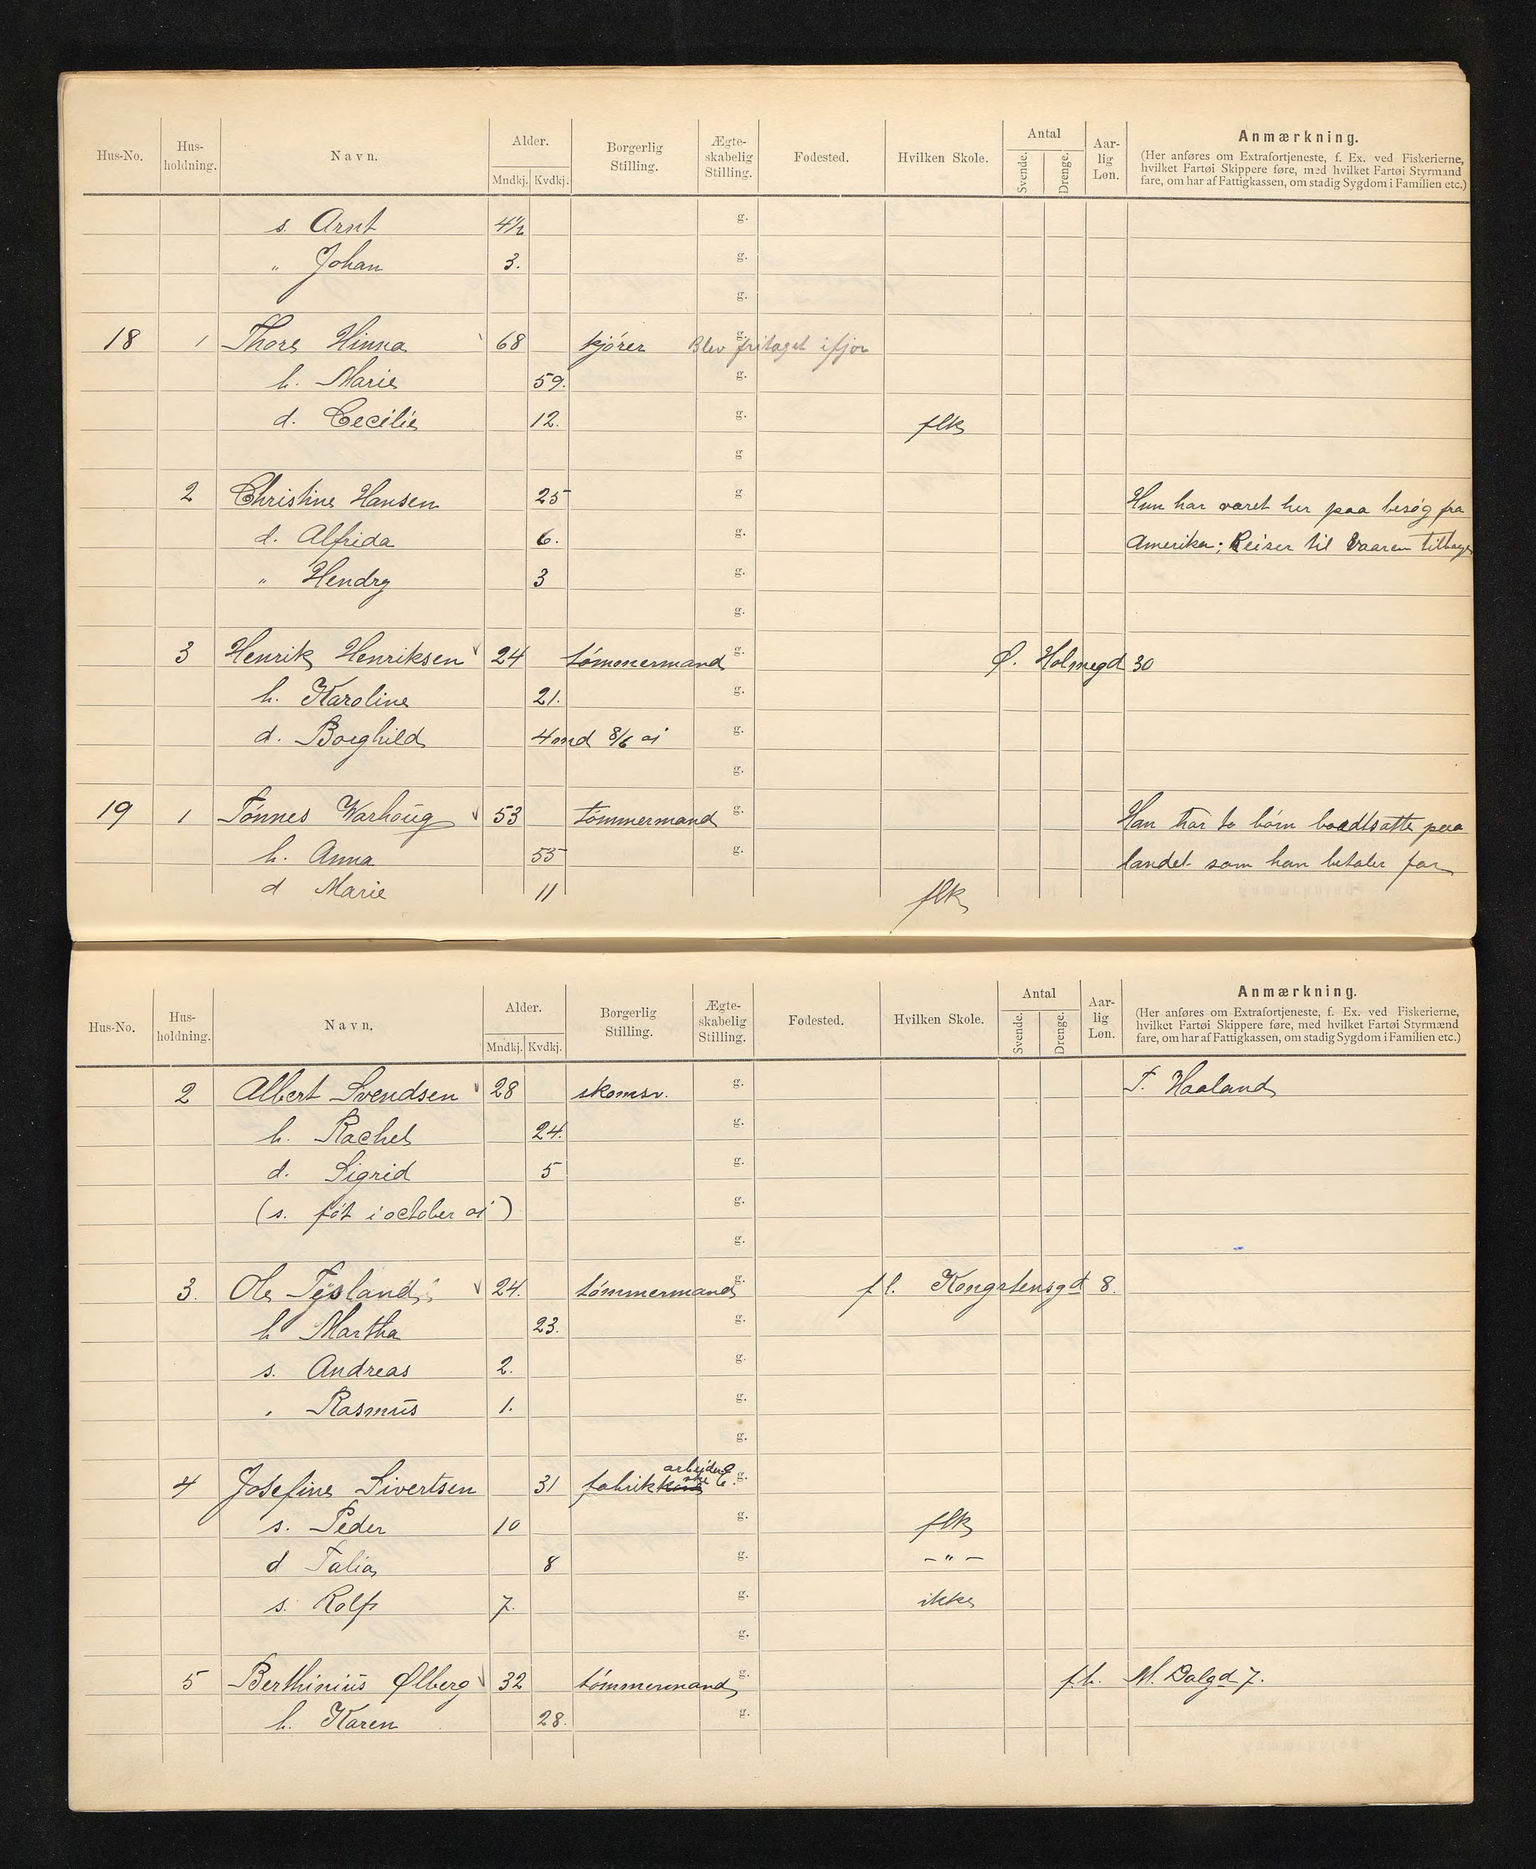 Hus-No. Hus-holdning. Navn. Alder. Mndkj. Kvdkj. Borgerlig Stilling. Ægte-skabelig Stilling. Fødested. Hvilken Skole. Antal Svende. Drenge. Aar-lig Løn. Anmærkning.
(Her anføres om Extrafortjeneste, f. Ex. ved Fiskerierne,
hvilket Fartøi Skippere føre, med hvilket Fartøi Styrmænd
fare, om har af Fattigkassen, om stadig Sygdom i Familien etc.)
s. Arnt 4½ g.
" Johan 3. g.
g.
18 1 Thore Hinna 68 kjører g. Blev fritaget ifjor
h. Marie 59. g.
d. Cecilie 12. g. flk
g.
2 Christine Hansen 25 g. Hun har været her paa besøg fra
d. Alfrida 6. g. Amerika; Reiser til Vaaren tilbage
" Hendry 3 g.
g.
3 Henrik Henriksen 24 tømmermand g. Ø. Holmegd 30
h. Karoline 21. g.
d. Borghild 4 md 8/6 01 g.
g.
19 1 Tønnes Warhoug 53 tømmermand g. Han har to børn bortsatte paa
h. Anna 55 g. landet som han betaler for
d Marie 11 flk
Hus-No. Hus-holdning. Navn. Alder. Mndkj. Kvdkj. Borgerlig Stilling. Ægte-skabelig Stilling. Fødested. Hvilken Skole. Antal Svende. Drenge. Aar-lig Løn. Anmærkning.
(Her anføres om Extrafortjeneste, f. Ex. ved Fiskerierne,
hvilket Fartøi Skippere føre, med hvilket Fartøi Styrmænd
fare, om har af Fattigkassen, om stadig Sygdom i Familien etc.)
2 Albert Svendsen 28 skomsv. g. T. Haaland
h. Rachel 24. g.
d. Sigrid 5 g.
(s. føt i october 01) g.
g.
3. Ole Tysland 24. tømmermand g. fl. Kongstensgt 8.
h Martha 23. g.
s. Andreas 2. g.
" Rasmus 1. g.
g.
4 Josefine Sivertsen 31 fabrik arbeiderske g.
s. Peder 10 g. flk
d Talia 8 g. -"-
s. Rolf 7. g. ikke
g.
5 Berthinius Ølberg 32 tømmermand g. fl. M. Dalgd 7.
h. Karen 28. g.